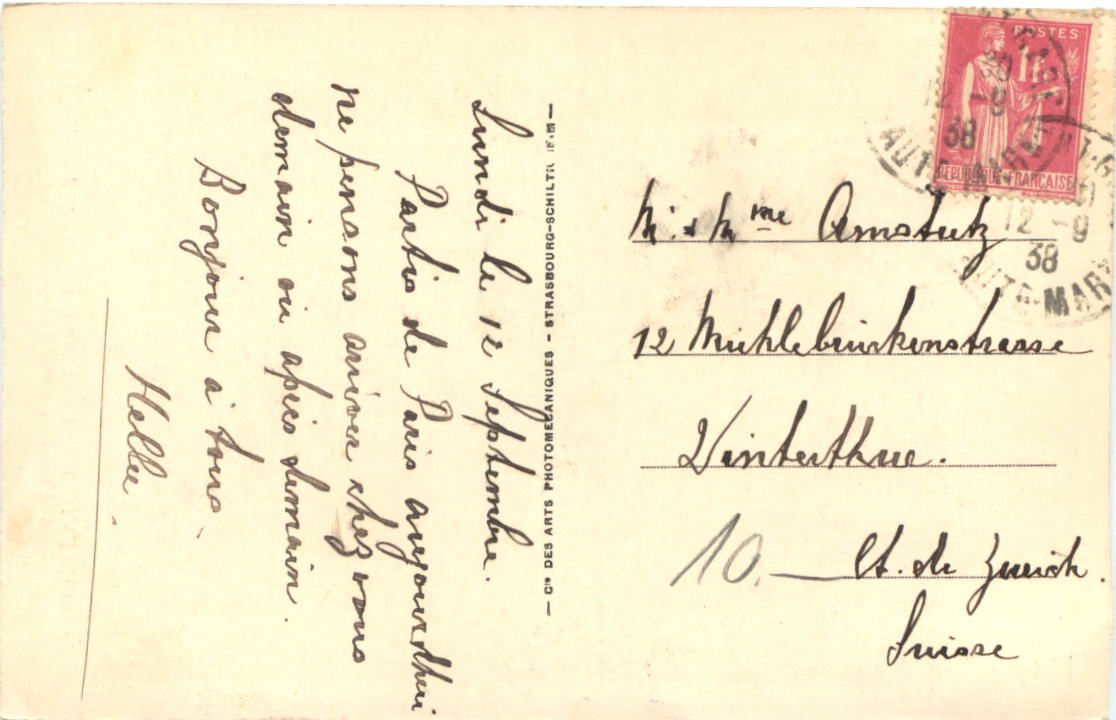 Lundi le 12 Septembre.
Partis de Paris aujourd'hui
ne pensons arriver chez vous
demain ou après demain.
Bonjour à tous.
Cie DES ARTS PHOTOMECANIQUES - STRASBOURG-SCHILTH
POSTES
1F
REPUBLIQUE FRANÇAISE
12 - 9
38
12 - 9
38
M. & Mme Amstutz
12 Mühlebrückenstrasse
Winterthur.
10.
Ct. de Zurich.
Suisse